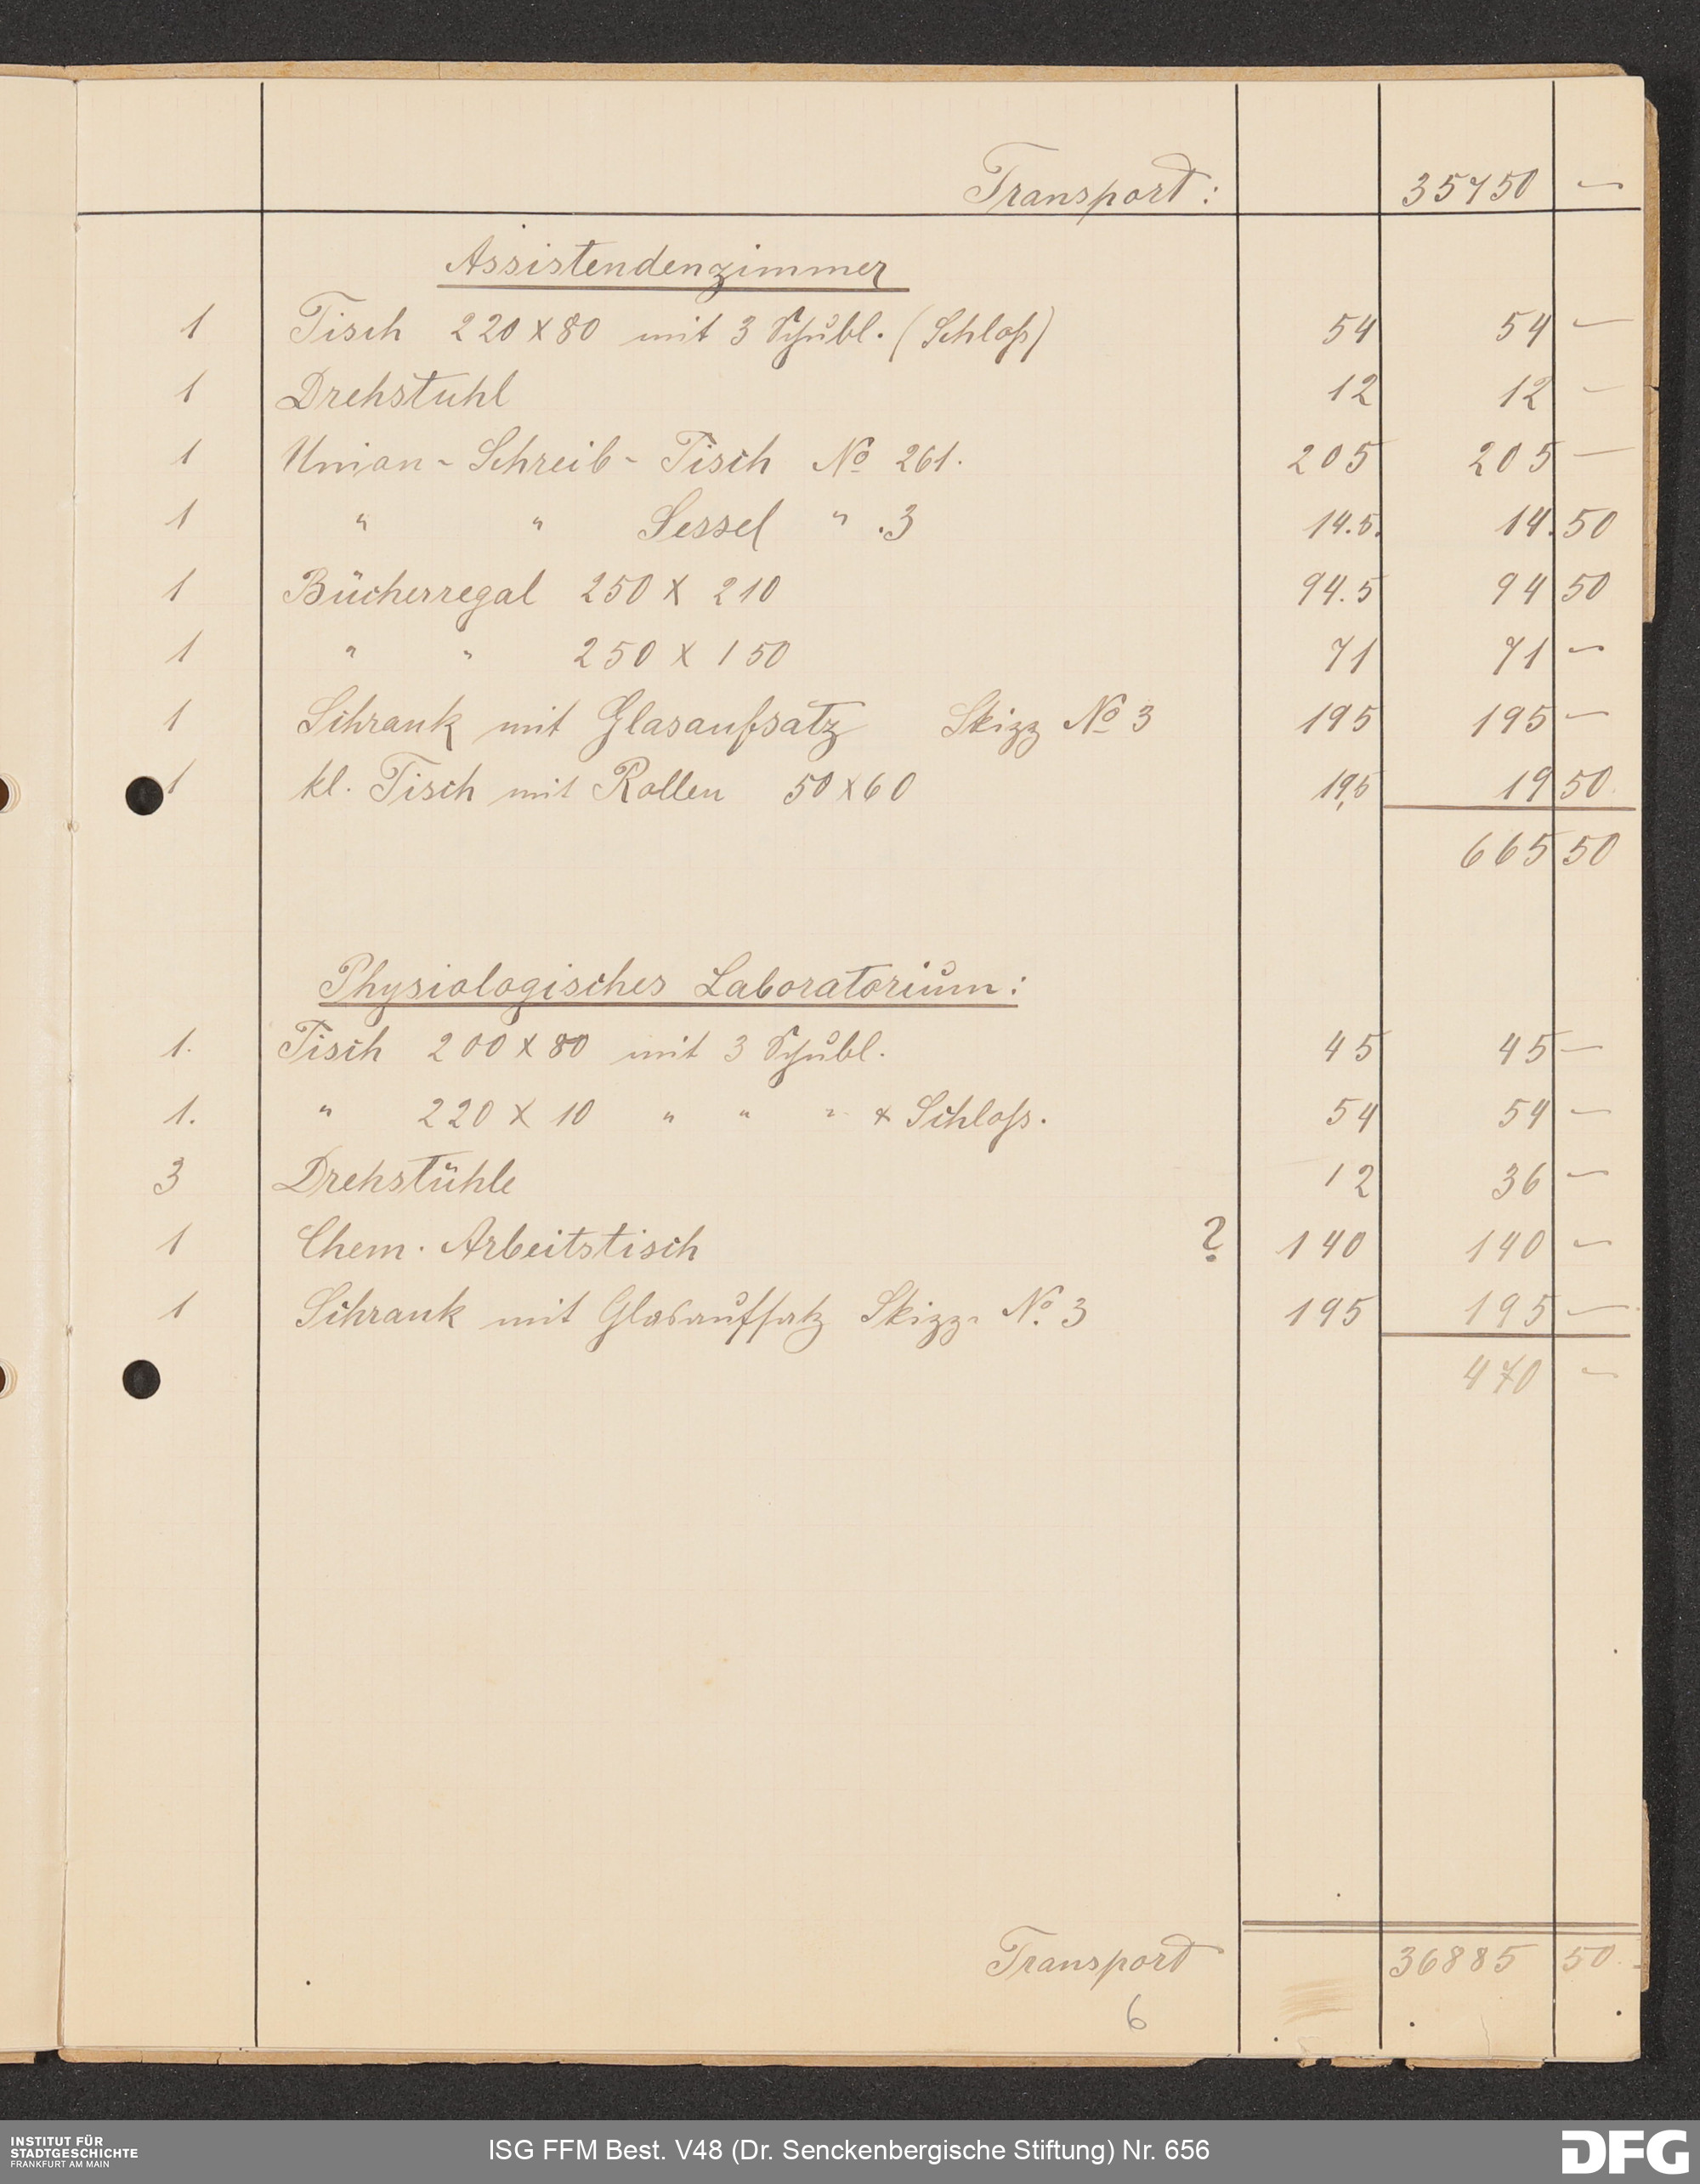 Transport: 35750 —
Assistendenzimmer
1 Tisch 220 x 80 mit 3 Schubl. (Schloß) 54 54 —
1 Drehstuhl 12 12 —
1 Union - Schreib - Tisch No 261. 205 205 —
1 " " Sessel " .3 14.5. 14. 50
1 Bücherregal 250 x 210 94.5 94 50
1 " " 250 x 150 71 71 —
1 Schrank mit Glasaufsatz Skizz No 3 195 195 —
1 kl. Tisch mit Rollen 50 x 60 19,5 19 50.
665 50
Physiologisches Laboratorium:
1. Tisch 200 x 80 mit 3 Schubl. 45 45 —
1. " 220 x 10 " " " & Schloß. 54 54 —
3 Drehstühle 12 36 —
1 Chem. Arbeitstisch ? 140 140 —
1 Schrank mit Glasaufsatz Skizz. No. 3 195 195 —
470 —
Transport 36885 50.
6
INSTITUT FÜR
STADTGESCHICHTE
FRANKFURT AM MAIN
ISG FFM Best. V48 (Dr. Senckenbergische Stiftung) Nr. 656
DFG